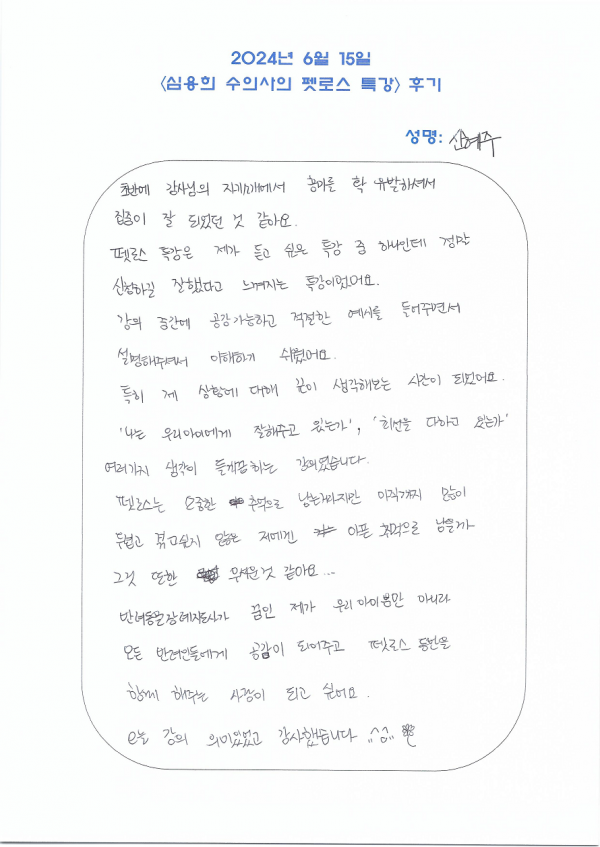 2024년 6월 15일
<심용희 수의사의 펫로스 특강> 후기
성명: 신혜주
초반에 강사님의 자기소개에서 흥미를 확 유발하셔서
집중이 잘 되었던 것 같아요.
펫로스 특강은 제가 듣고 싶은 특강 중 하나인데 정말
신청하길 잘했다고 느껴지는 특강이었어요.
강의 중간에 공감가능하고 적절한 예시를 들어주면서
설명해주셔서 이해하기 쉬웠어요.
특히 제 상황에 대해 깊이 생각해보는 시간이 되었어요.
'나는 우리아이에게 잘해주고 있는가', '최선을 다하고 있는가'
여러가지 생각이 들게끔하는 강의였습니다.
펫로스는 소중한 추억으로 남는다지만 아직까지 많이
두렵고 겪고싶지 않은 저에겐 아픈 추억으로 남을까
그것 또한 무서운 것 같아요...
반려동물장례지도사가 꿈인 제가 우리아이뿐만 아니라
모든 반려인들에게 공감이 되어주고 펫로스 동반을
함께 해주는 사람이 되고 싶어요.
오늘 강의 의미있었고 감사했습니다 ^^